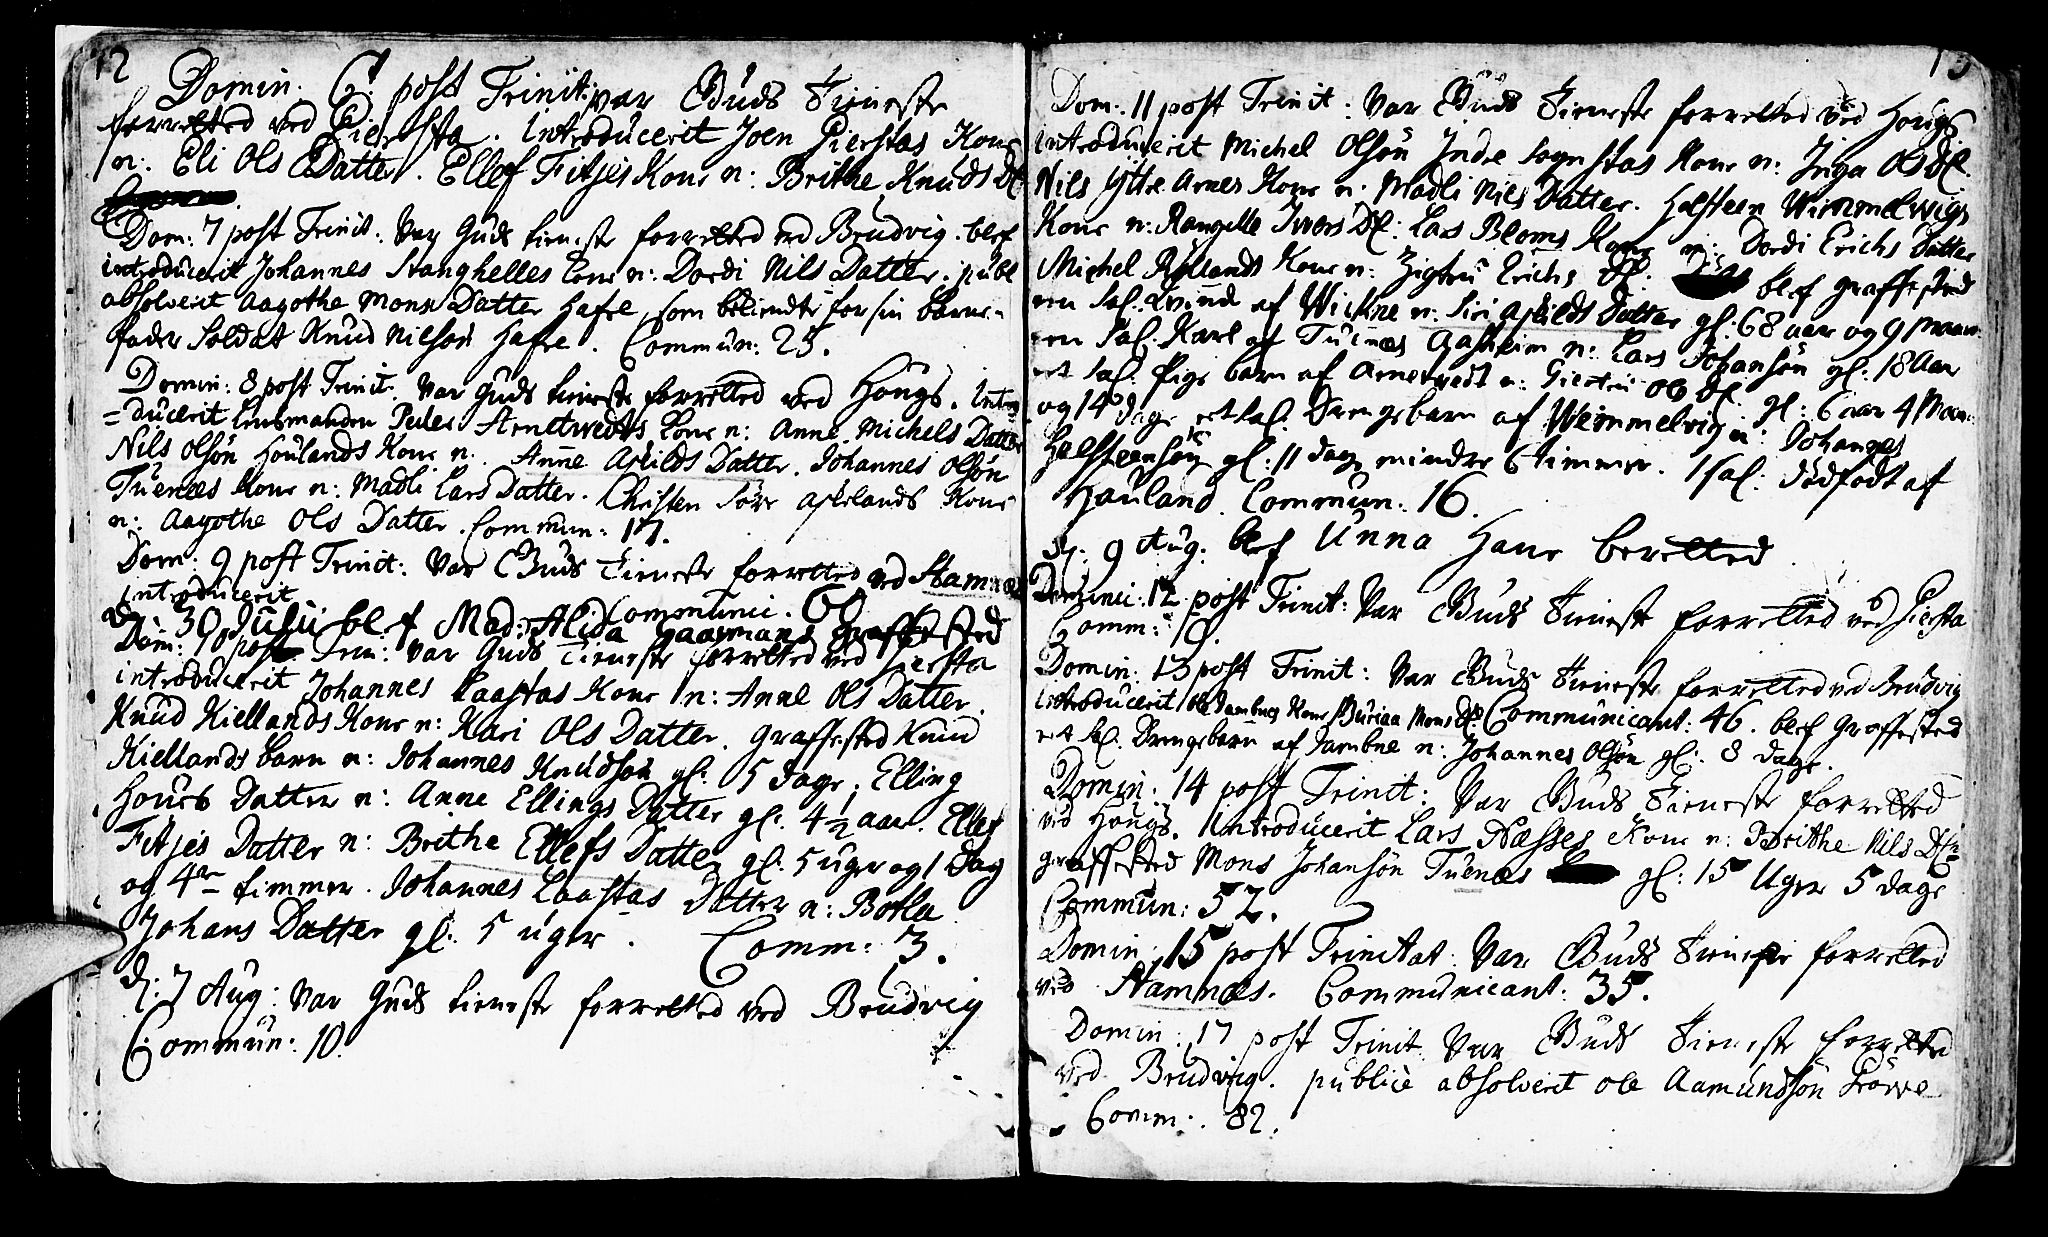 12
Domin. 6 post Trinit: var Guds Tieneste
forretted ved Giersta. introducerit Joen Gierstas Kone
n: Eli Ols Datter. Ellef Fitjes Kone n: Brithe Knuds Dt
Dom: 7 post Trinit: Var Guds tieneste forretted ved Brudvig. blef
introducerit Johannes Stanghelles Kone n: Dordi Nils Datter. publ
absolverit Aagothe Mons Datter Hafre, som bekiendte for sin barne-
fader Soldat Knud Nilsøn Hafre. Commun: 25.
Domin: 8 post Trinit. Var Guds tieneste forretted ved Hougs. Intro
=ducerit Linsmanden Peder Arnetvedts Kone n: Anne Michels Datter
Nils Olsøn Houlands Kone n: Anne Askilds Datter. Johannes Olsøn
Tuenæs Kone n: Madli Lars Datter. Christen Søre Askelands Kone
n: Aagothe Ols Datter. Commun: 17.
Dom: 9 post Trinit: Var Guds Tieneste forretted ved Stamnæs
introducerit Communic. 60
d: 30 Julii blef Mad: Alida Gaarmans graffested
Dom: 10 post Trin: var Guds Tieneste forretted ved Giersta
introducerit Johannes Laastas Kone n: Anne Ols Datter.
Knud Kiellands Kone n: Kari Ols Datter. graffested Knud
Kiellands barn n: Johannes Knudsøn gl: 5 dage, Elling
Houes Datter n: Anne Ellings Datter gl: 4½ aar. Ellef
Fitjes Datter n: Brithe Ellefs Datter gl: 5 uger og 1 Dag
og 4re timmer. Johannes Laastas Datter n: Botla
Johans Datter gl: 5 uger. Comm: 3.
d: 7 Aug: Var Guds tieneste forretted ved Brudvig
Commun: 10.
13
Dom: 11 post Trinit: Var Guds Tieneste forretted ved Hougs
introducerit Michel Olsøn Indre Kone n: Inga Ols Dt.
Nils Yttre Arnes Kone n: Madli Niels Datter. Halsteen Wemmelwigs
Kone n: Rangelle Ivers Dt: Lars Bloms Kone n: Dordi Erichs Datter
Michel Røllands Kone n: Zigtru Erichs Dt: blef graffested
een Sal: Kvinde af Wickne n: Siri Askilds Datter gl: 68 aar og 9 Maan:
een Sal: Karl af Tuenæs Gasheim n: Lars Johansøn gl: 18 Aar
et Sal: Pige barn af Arnetvedt n: Giertru Ols Dt gl: 6 aar 4 Maan:
og 14 dage et Sal: Drengebarn af Wemmelvig n: Johannes
Halsteensøn gl: 11 dage mindre 6 timmer. 1 Sal: dødfødt af
Hauland. Commun: 16.
d: 9 Aug: blef Unna Hane beretted
Dominic: 12 post Trinit: Var Guds Tieneste forretted ved Giersta
Comm: 9.
Domin: 13 post Trinit: Var Guds Tieneste forretted ved Brudvig
introducerit Ole Dambnes Kone Buriaa Mons Dt. Communicant: 46. blef graffested
et Sal. Drengebarn af Dambne n: Johannes Olsøn gl: 8 dage.
Domin: 14 post Trinit: Var Guds Tieneste forretted
ved Hougs. Introducerit Lars Næsses Kone n: Brithe Nils Dt
graffested Mons Johansøn Tuenæs gl: 15 Uger 5 dage
Commun: 52.
Domin: 15 post Trinitat: Var Guds Tieneste forretted
ved Stamnæs. Communicant: 35.
Domin: 17 post Trinit. Var Guds Tieneste forretted
ved Brudvig. publice absolverit ole Aamundsøn
Comm: 82.